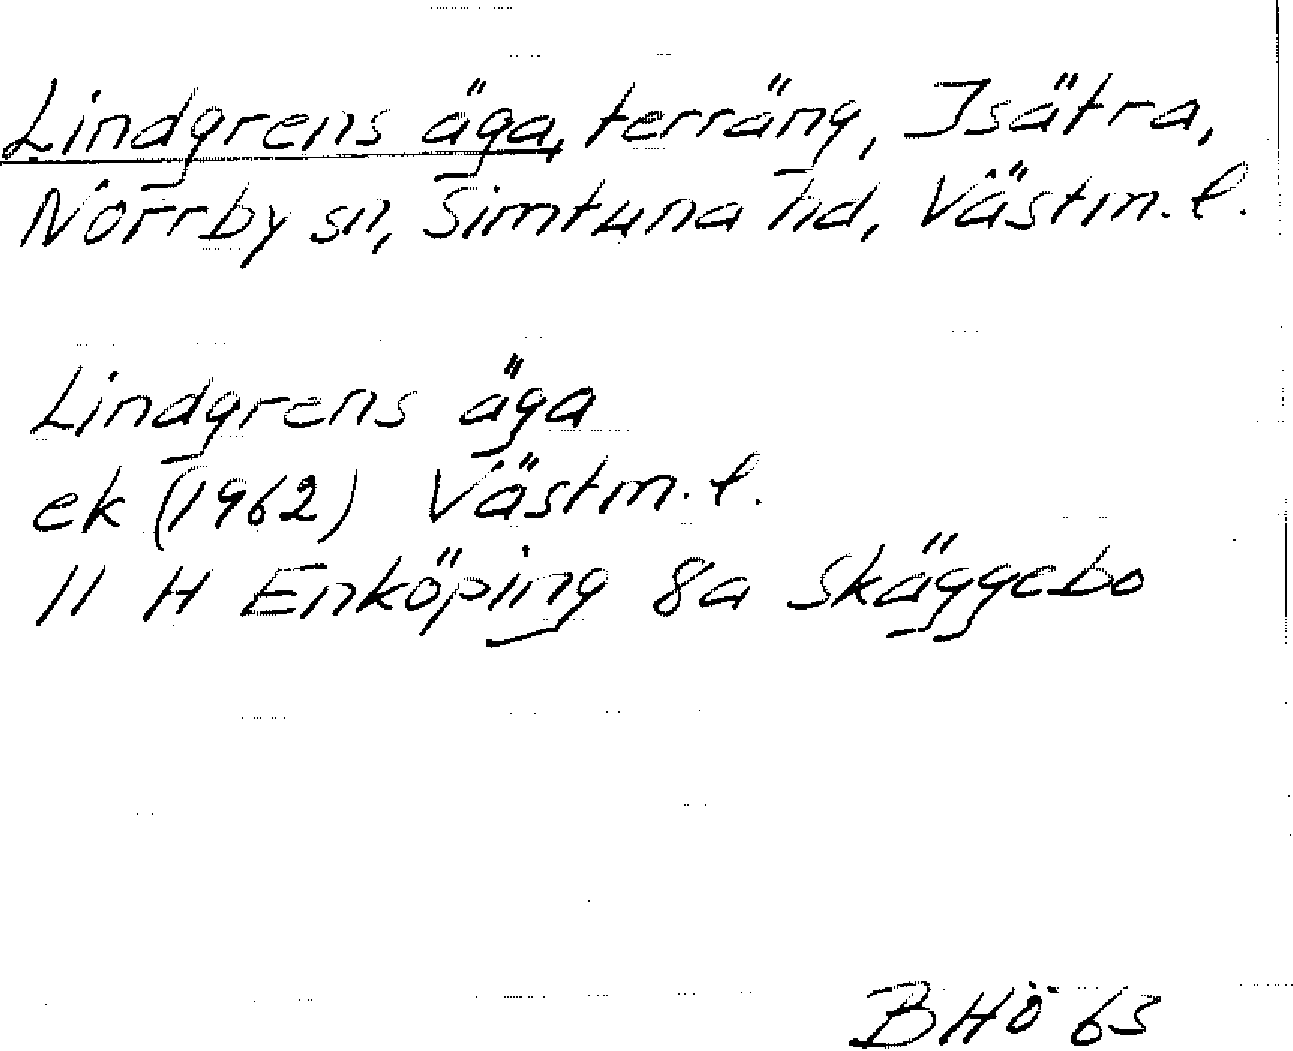 Lindgrens äga, terräng, Isätra,
Norrby sn, Simtuna hd, Västm. l.
Lindgrens äga
ek (1962) Västm. l.
11 H Enköping 8a Skäggebo
BHÖ 63